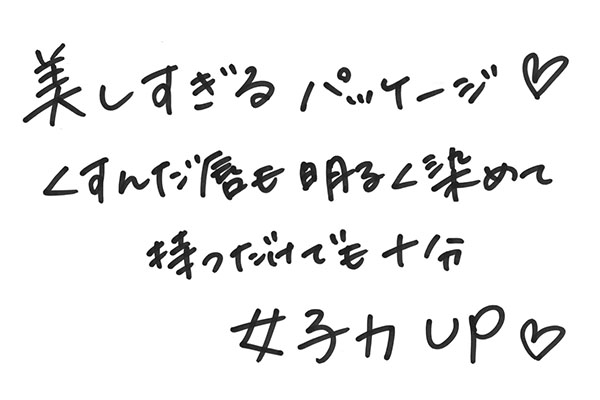 美しすぎる パッケージ♡
くすんだ唇も 明るく染めて
持つだけでも 十分
女子力 UP♡